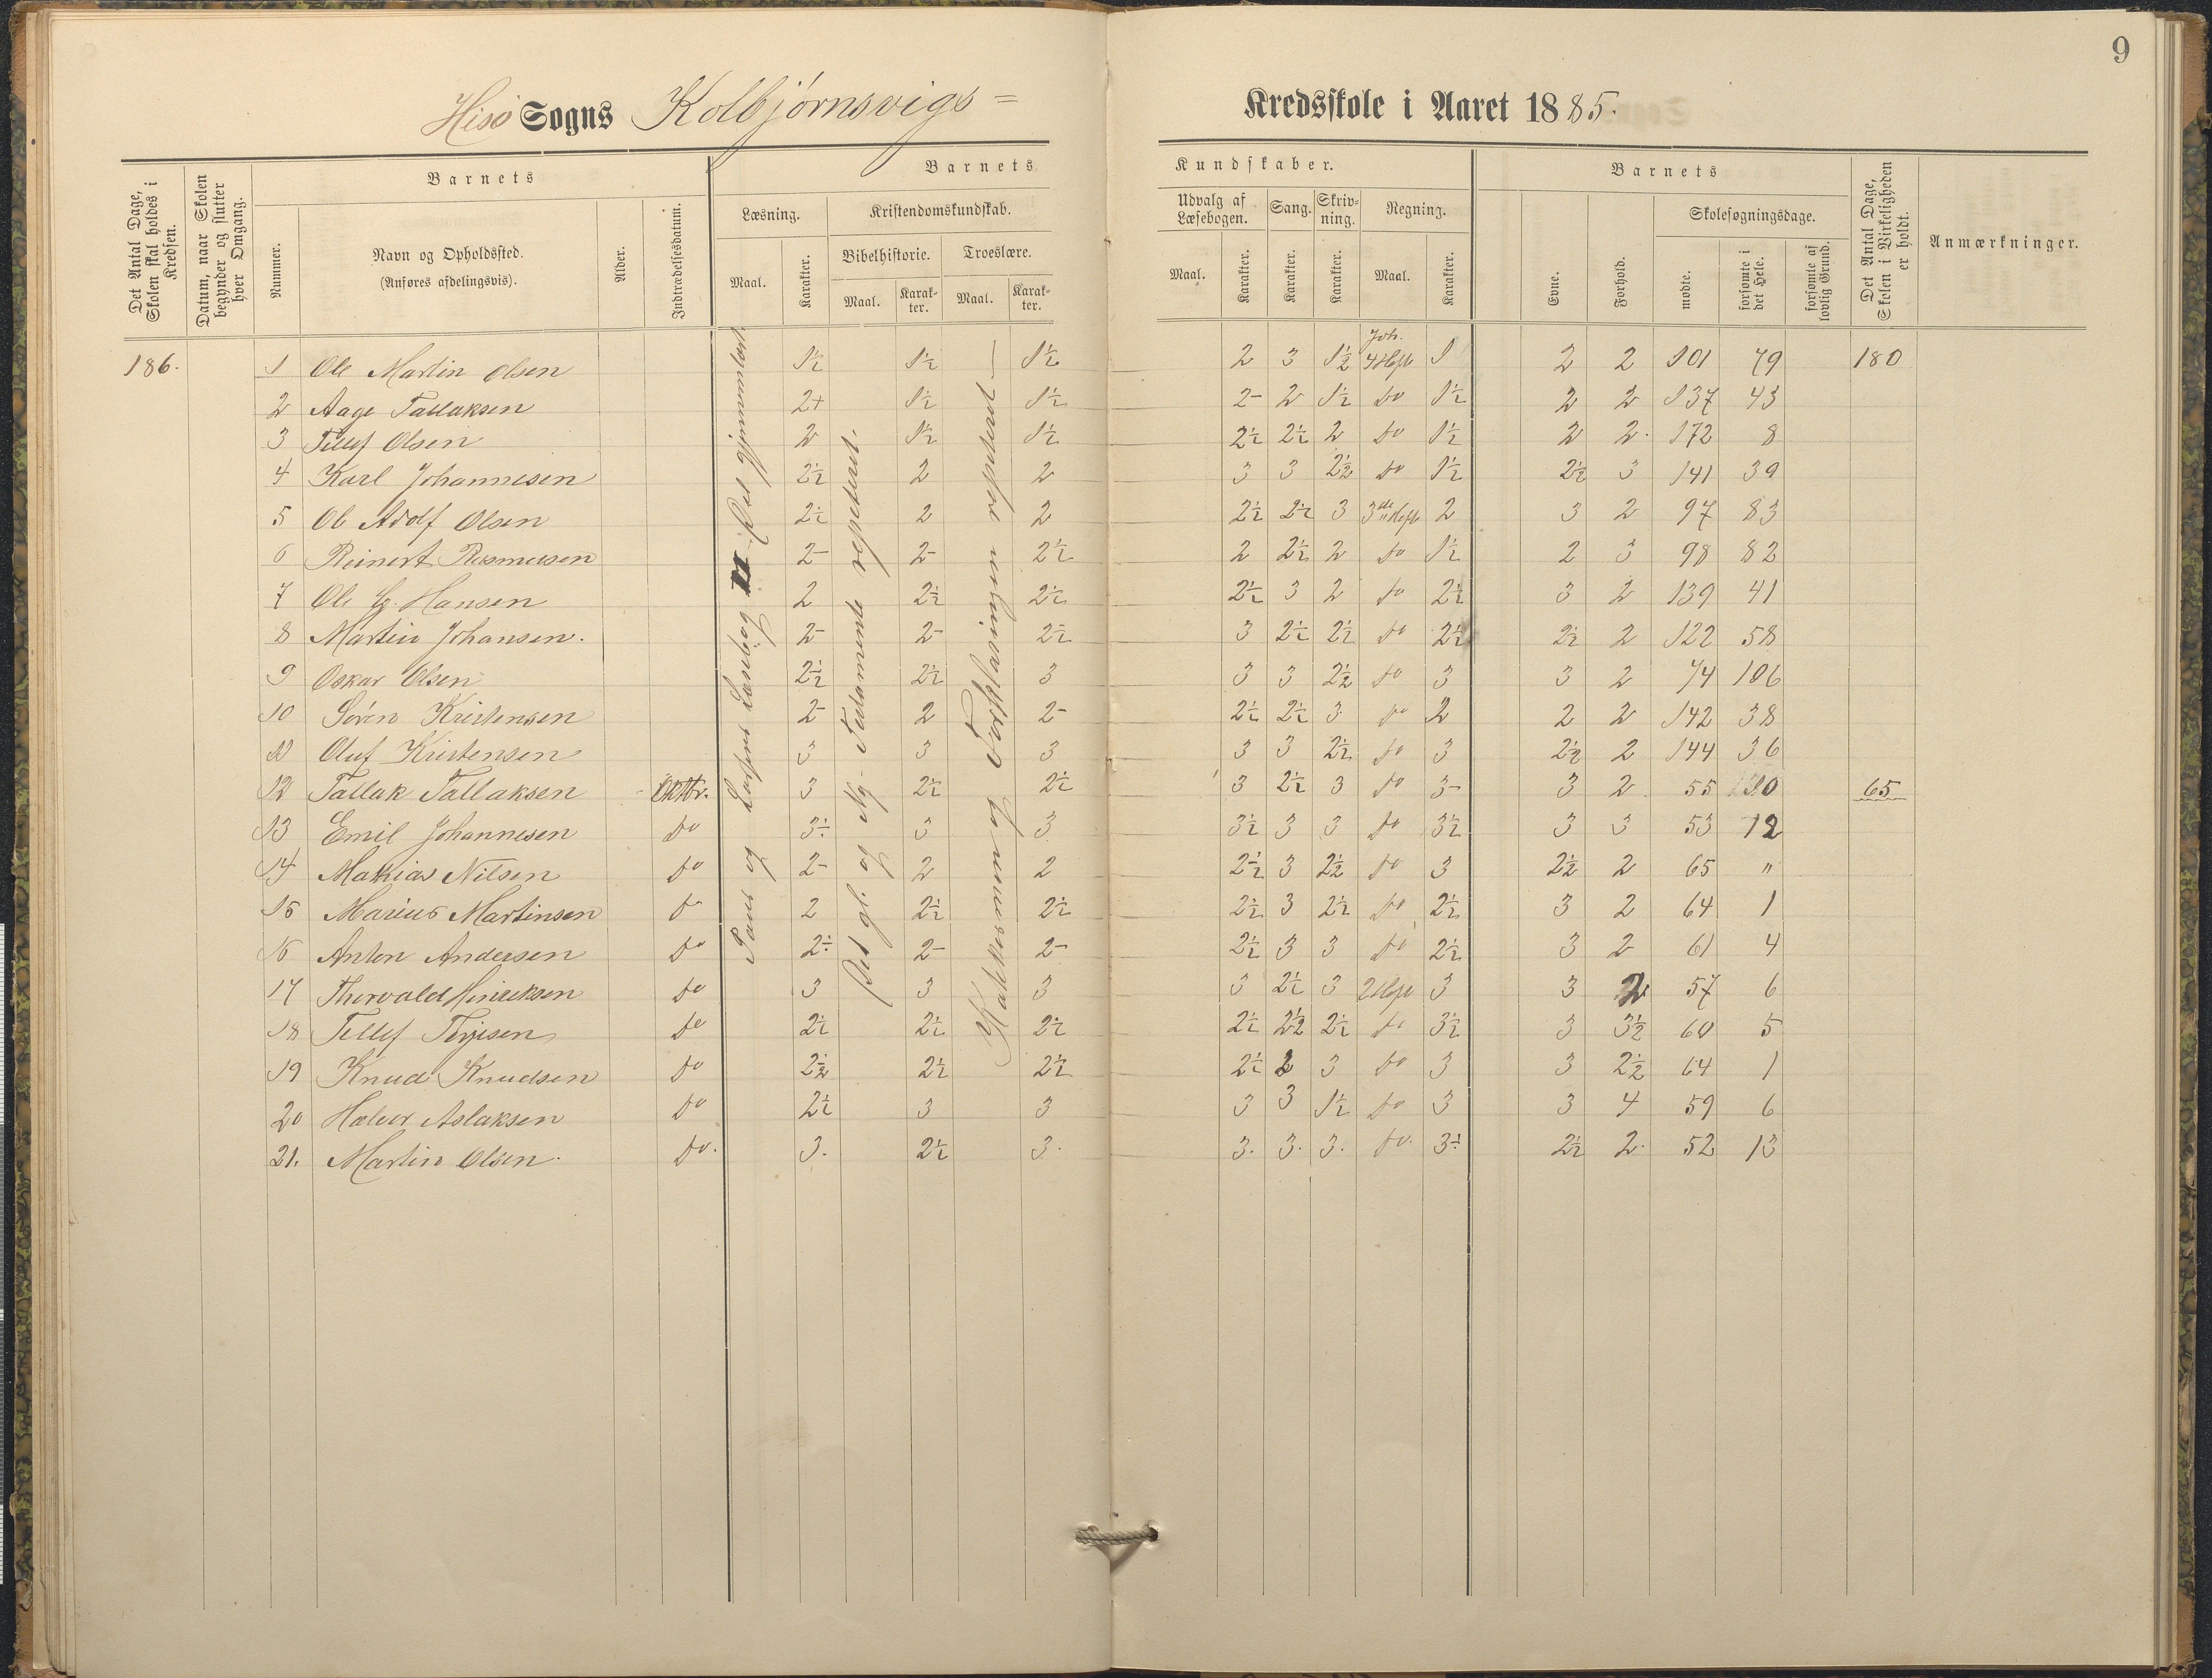 9
Hisø Sogns Kolbjørnsvigs= Kredsskole i Aaret 1885.
Det Antal Dage, Skolen skal holdes i Kredsen.
Datum, naar Skolen begynder og slutter hver Omgang.
Barnets
Nummer.
Navn og Opholdssted.
(Anføres afdelingsvis).
Alder.
Indtrædelsesdatum.
Barnets Kundskaber.
Læsning.
Maal. Karakter.
Kristendomskundskab.
Bibelhistorie. Troeslære.
Maal. Karakter. Maal. Karakter.
Udvalg af Læsebogen. Sang. Skrivning. Regning.
Maal. Karakter. Karakter. Karakter. Maal. Karakter.
Barnets
Evne. Forhold.
Skolesøgningsdage.
mødte. forsømte i det Hele. forsømte af lovlig Grund.
Det Antal Dage, Skolen i Virkeligheden er holdt.
Anmærkninger.
Paus og Lassens Læsebog II. Del gjennemlæst
Det gl. og Ny Testamente repeteret.
Katekismen og Forklaringen repeteret
186. 1 Ole Martin Olsen 1½ 1½ 1½ 2 3 1½ Joh. 4 Heft 1 2 2 101 79 180
2 Aage Tallaksen 2+ 1½ 1½ 2- 2 1½ do 1½ 2 2 137 43
3 Tellef Olsen 2 1½ 1½ 2½ 2½ 2 do 1½ 2 2. 172 8
4 Karl Johannesen 2½ 2 2 3 3 2½ do 1½ 2½ 3 141 39
5 Ole Adolf Olsen 2½ 2 2 2½ 2½ 3 3die Heft 2 3 2 97 83
6 Reinert Rasmussen 2- 2- 2½ 2 2½ 2 do 1½ 2 3 98 82
7 Ole G. Hansen 2 2½ 2½ 2½ 3 2 do 2½ 3 2 139 41
8 Martin Johansen. 2- 2- 2½ 3 2½ 2½ do 2½ 2½ 2 122 58
9 Oskar Olsen 2½ 2½ 3 3 3 2½ do 3 3 2 74 106
10 Søren Kristensen 2- 2 2- 2½ 2½ 3 do 2 2 2 142 38
11 Oluf Kristensen 3 3 3 3 3 2½ do 3 2½ 2 144 36
12 Tallak Tallaksen Oktbr. 3 2½ 2½ 3 2½ 3 do 3- 3 2 55 10 65
13 Emil Johannesen do 3÷ 3 3 3½ 3 3 do 3½ 3 3 53 12
14 Mathias Nilsen do 2- 2 2 2½ 3 2½ do 3 2½ 2 65 "
15 Marius Martinsen do 2 2½ 2½ 2½ 3 2½ do 2½ 3 2 64 1
16 Anton Andersen do 2÷ 2- 2- 2½ 3 3 do 2½ 3 2 61 4
17 Thorvald Henriksen do 3 3 3 3 2½ 3 2 Heft 3 3 2 57 6
18 Tellef Terjesen do 2½ 2½ 2½ 2½ 2½ 2½ do 3½ 3 3½ 60 5
19 Knud Knudsen do 2½ 2½ 2½ 2½ 2 3 do 3 3 2½ 64 1
20 Halvor Aslaksen do 2½ 3 3 3 3 1½ do 3 3 4 59 6
21. Martin Olsen. do. 3. 2½ 3. 3. 3. 3. do. 3÷ 2½ 2. 52 13